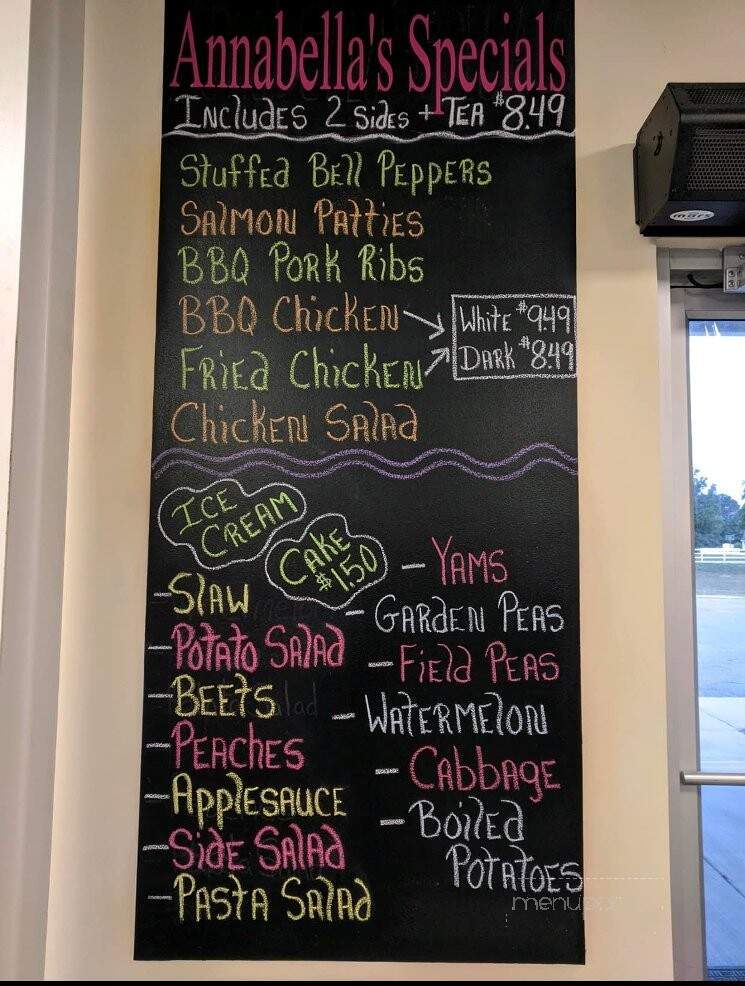 Annabella's Specials
Includes 2 sides + Tea $8.49
Stuffed Bell Peppers
Salmon Patties
BBQ Pork Ribs
BBQ Chicken
White $9.49
Fried Chicken
Dark $8.49
Chicken Salad
Ice
Cream
Cake
$1.50
- Slaw
- Potato Salad
- Beets
- Peaches
- Applesauce
- Side Salad
- Pasta Salad
- Yams
- Garden Peas
- Field Peas
- Watermelon
- Cabbage
- Boiled
Potatoes
mars